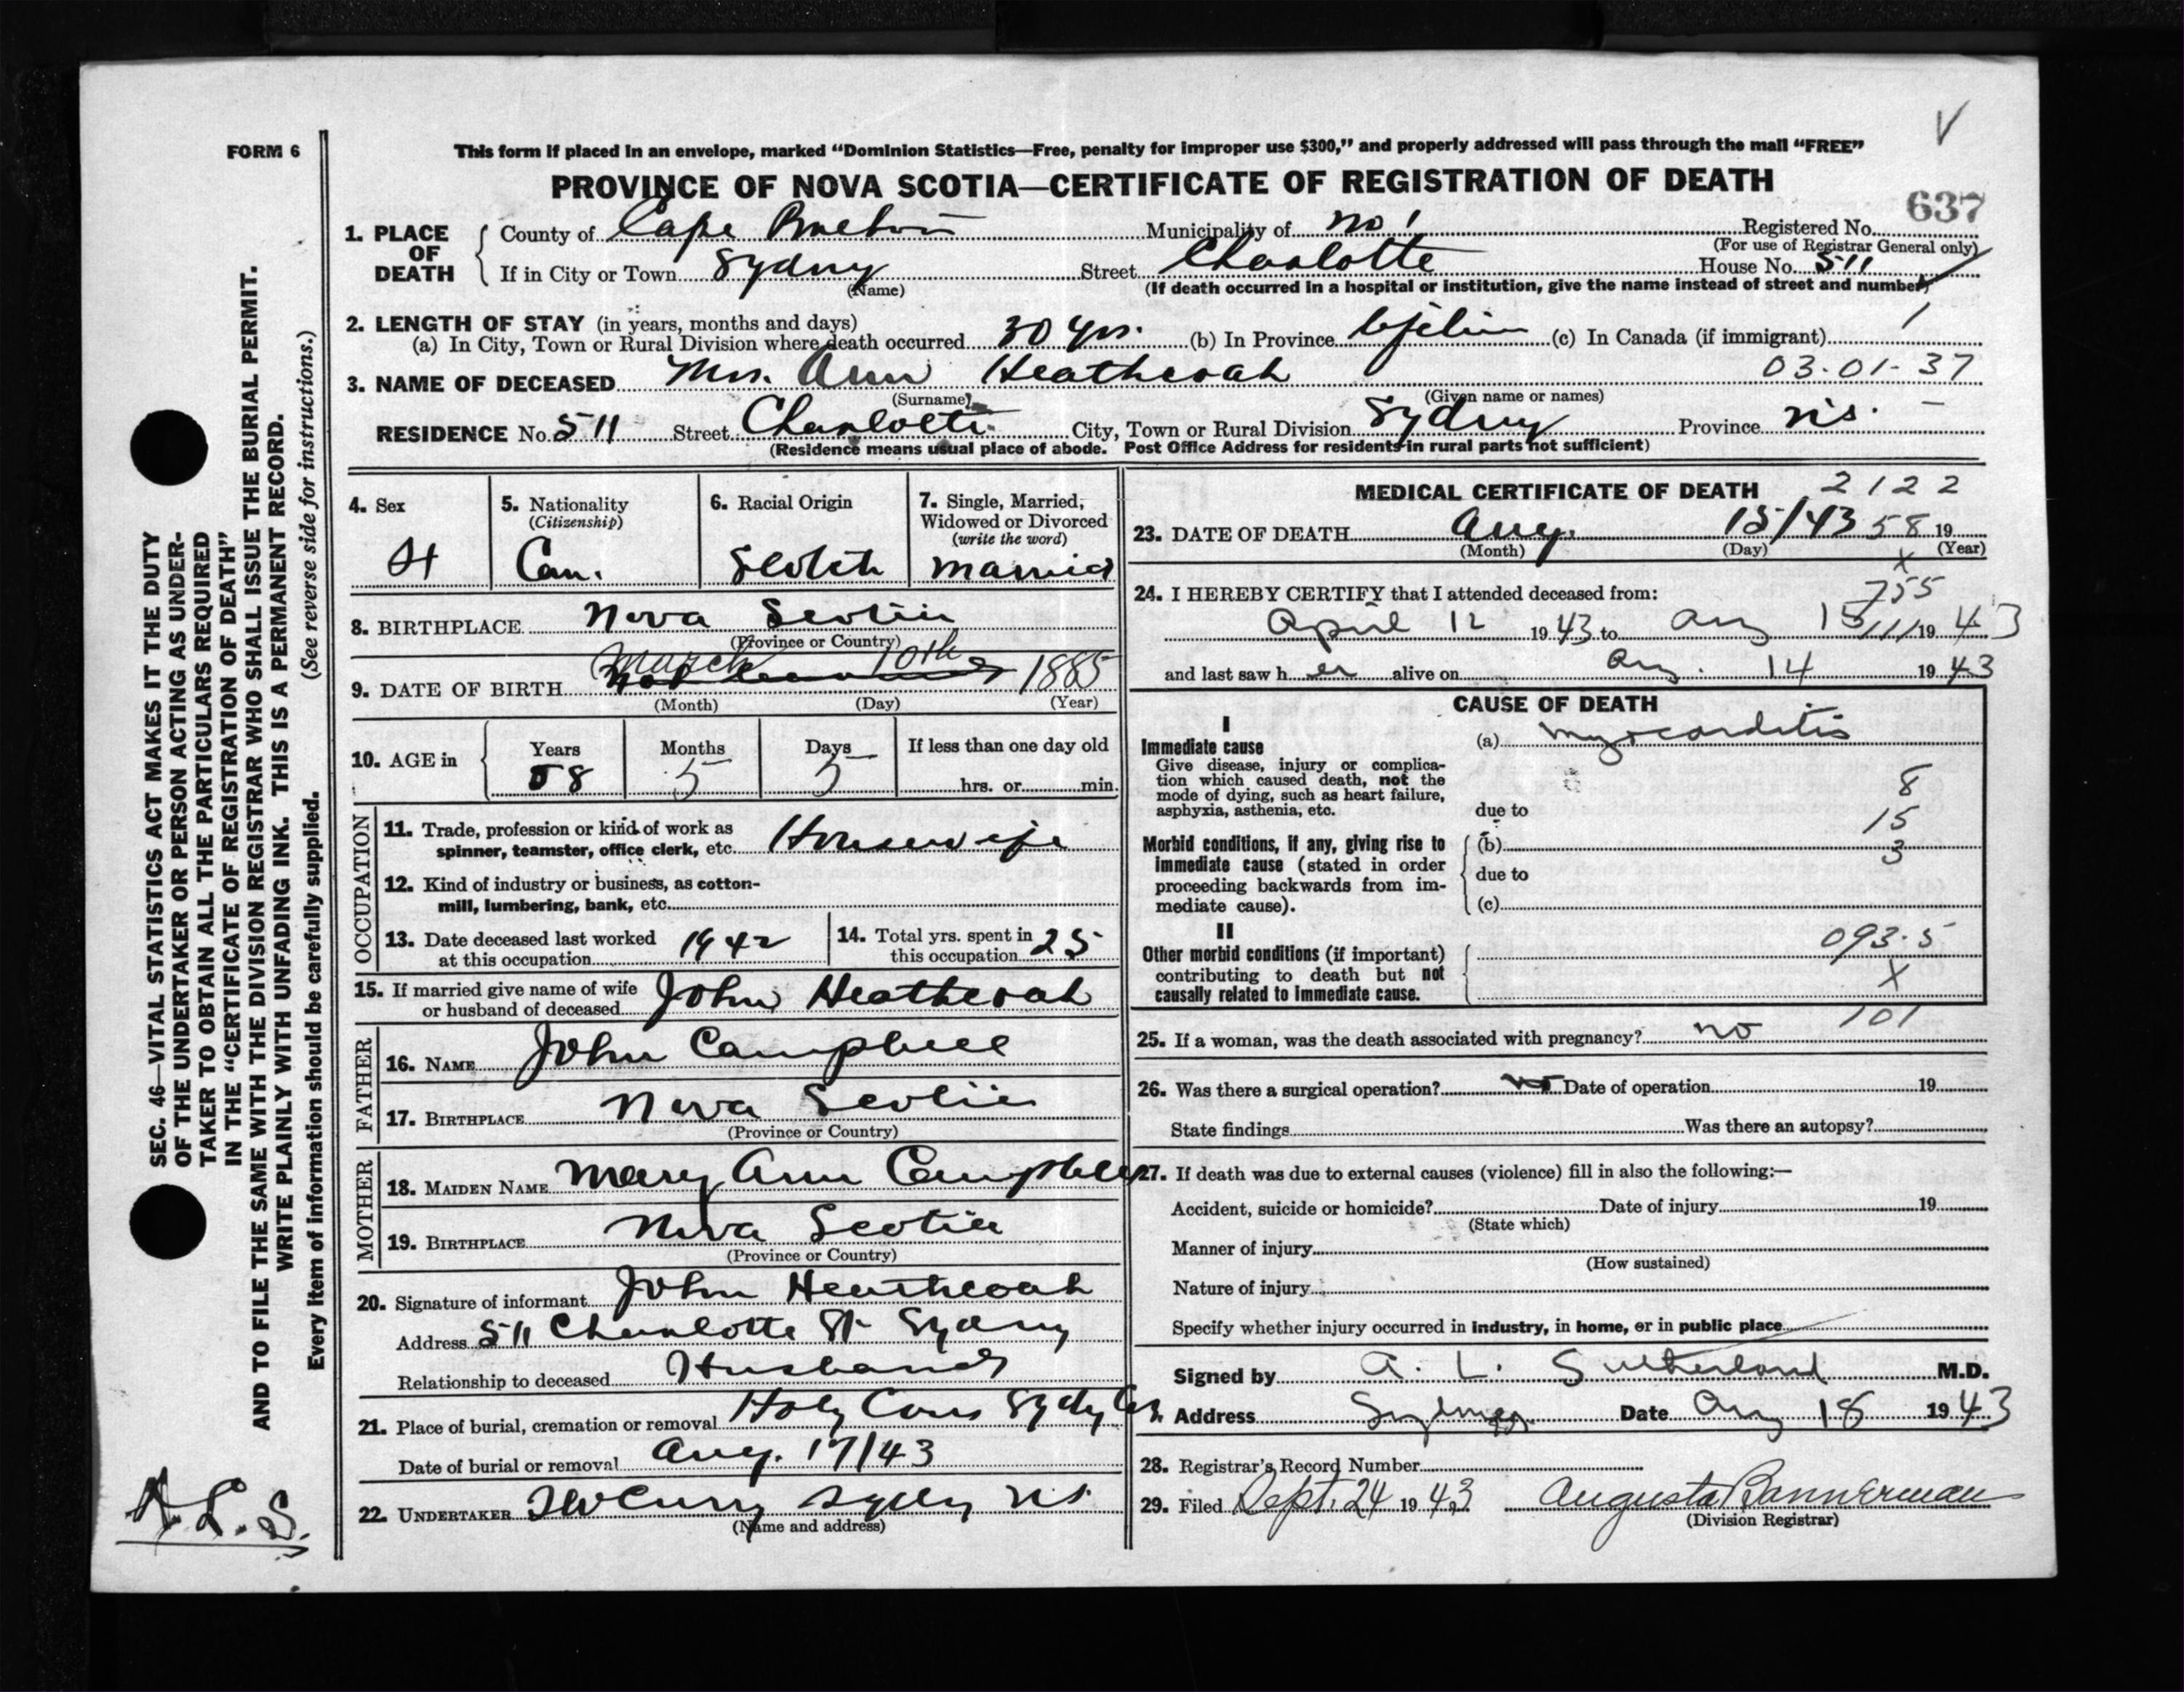 V
FORM 6
This form if placed in an envelope, marked "Dominion Statistics—Free, penalty for improper use $300," and properly addressed will pass through the mail "FREE"
PROVINCE OF NOVA SCOTIA—CERTIFICATE OF REGISTRATION OF DEATH
637
1. PLACE OF DEATH County of Cape Breton Municipality of No 1 Registered No.
(For use of Registrar General only)
If in City or Town Sydney Street Charlotte House No. 511
(Name) (If death occurred in a hospital or institution, give the name instead of street and number)
2. LENGTH OF STAY (in years, months and days)
(a) In City, Town or Rural Division where death occurred 30 yrs. (b) In Province Lifetime (c) In Canada (if immigrant) 1
3. NAME OF DECEASED Mrs. Ann Heathcoah 03.01-37
(Surname) (Given name or names)
RESIDENCE No. 511 Street Charlotte City, Town or Rural Division Sydney Province N.S. —
(Residence means usual place of abode. Post Office Address for residents in rural parts not sufficient)
4. Sex 5. Nationality (Citizenship) 6. Racial Origin 7. Single, Married, Widowed or Divorced (write the word)
Can. Scotch Married
8. BIRTHPLACE Nova Scotia
(Province or Country)
9. DATE OF BIRTH March 10th 1885
(Month) (Day) (Year)
10. AGE in Years Months Days If less than one day old
58 5 5 hrs. or min.
OCCUPATION
11. Trade, profession or kind of work as
spinner, teamster, office clerk, etc. Housewife
12. Kind of industry or business, as cotton-
mill, lumbering, bank, etc.
13. Date deceased last worked at this occupation 1942 14. Total yrs. spent in this occupation 25
15. If married give name of wife
or husband of deceased John Heathcoah
FATHER
16. NAME John Campbell
17. BIRTHPLACE Nova Scotia
(Province or Country)
MOTHER
18. MAIDEN NAME Mary Ann Campbell
19. BIRTHPLACE Nova Scotia
(Province or Country)
20. Signature of informant John Heathcoah
Address 511 Charlotte St Sydney
Relationship to deceased Husband
21. Place of burial, cremation or removal Holy Cross Sydy
Date of burial or removal Aug. 17/43
22. UNDERTAKER Sydney NS
(Name and address)
MEDICAL CERTIFICATE OF DEATH 2122
23. DATE OF DEATH Aug. 15/43 58 19
(Month) (Day) (Year)
x
24. I HEREBY CERTIFY that I attended deceased from: 755
April 12 1943 to Aug 15 111 1943
and last saw her alive on Aug. 14 1943
CAUSE OF DEATH
I
Immediate cause (a) Myocarditis
Give disease, injury or complica-
tion which caused death, not the
mode of dying, such as heart failure,
asphyxia, asthenia, etc. due to 8
15
Morbid conditions, if any, giving rise to (b) 3
immediate cause (stated in order
proceeding backwards from im- due to
mediate cause). (c)
II
Other morbid conditions (if important) 093.5
contributing to death but not X
causally related to immediate cause.
101
25. If a woman, was the death associated with pregnancy? no
26. Was there a surgical operation? no Date of operation 19
State findings Was there an autopsy?
27. If death was due to external causes (violence) fill in also the following:—
Accident, suicide or homicide? Date of injury 19
(State which)
Manner of injury
(How sustained)
Nature of injury
Specify whether injury occurred in industry, in home, or in public place
Signed by A. L. Sutherland M.D.
Address Sydney Date Aug 18 1943
28. Registrar's Record Number
29. Filed Sept. 24 1943 Augusta Bannerman
(Division Registrar)
SEC. 46—VITAL STATISTICS ACT MAKES IT THE DUTY
OF THE UNDERTAKER OR PERSON ACTING AS UNDER-
TAKER TO OBTAIN ALL THE PARTICULARS REQUIRED
IN THE "CERTIFICATE OF REGISTRATION OF DEATH"
AND TO FILE THE SAME WITH THE DIVISION REGISTRAR WHO SHALL ISSUE THE BURIAL PERMIT.
WRITE PLAINLY WITH UNFADING INK. THIS IS A PERMANENT RECORD.
(See reverse side for instructions.)
Every item of information should be carefully supplied.
A.L.S.